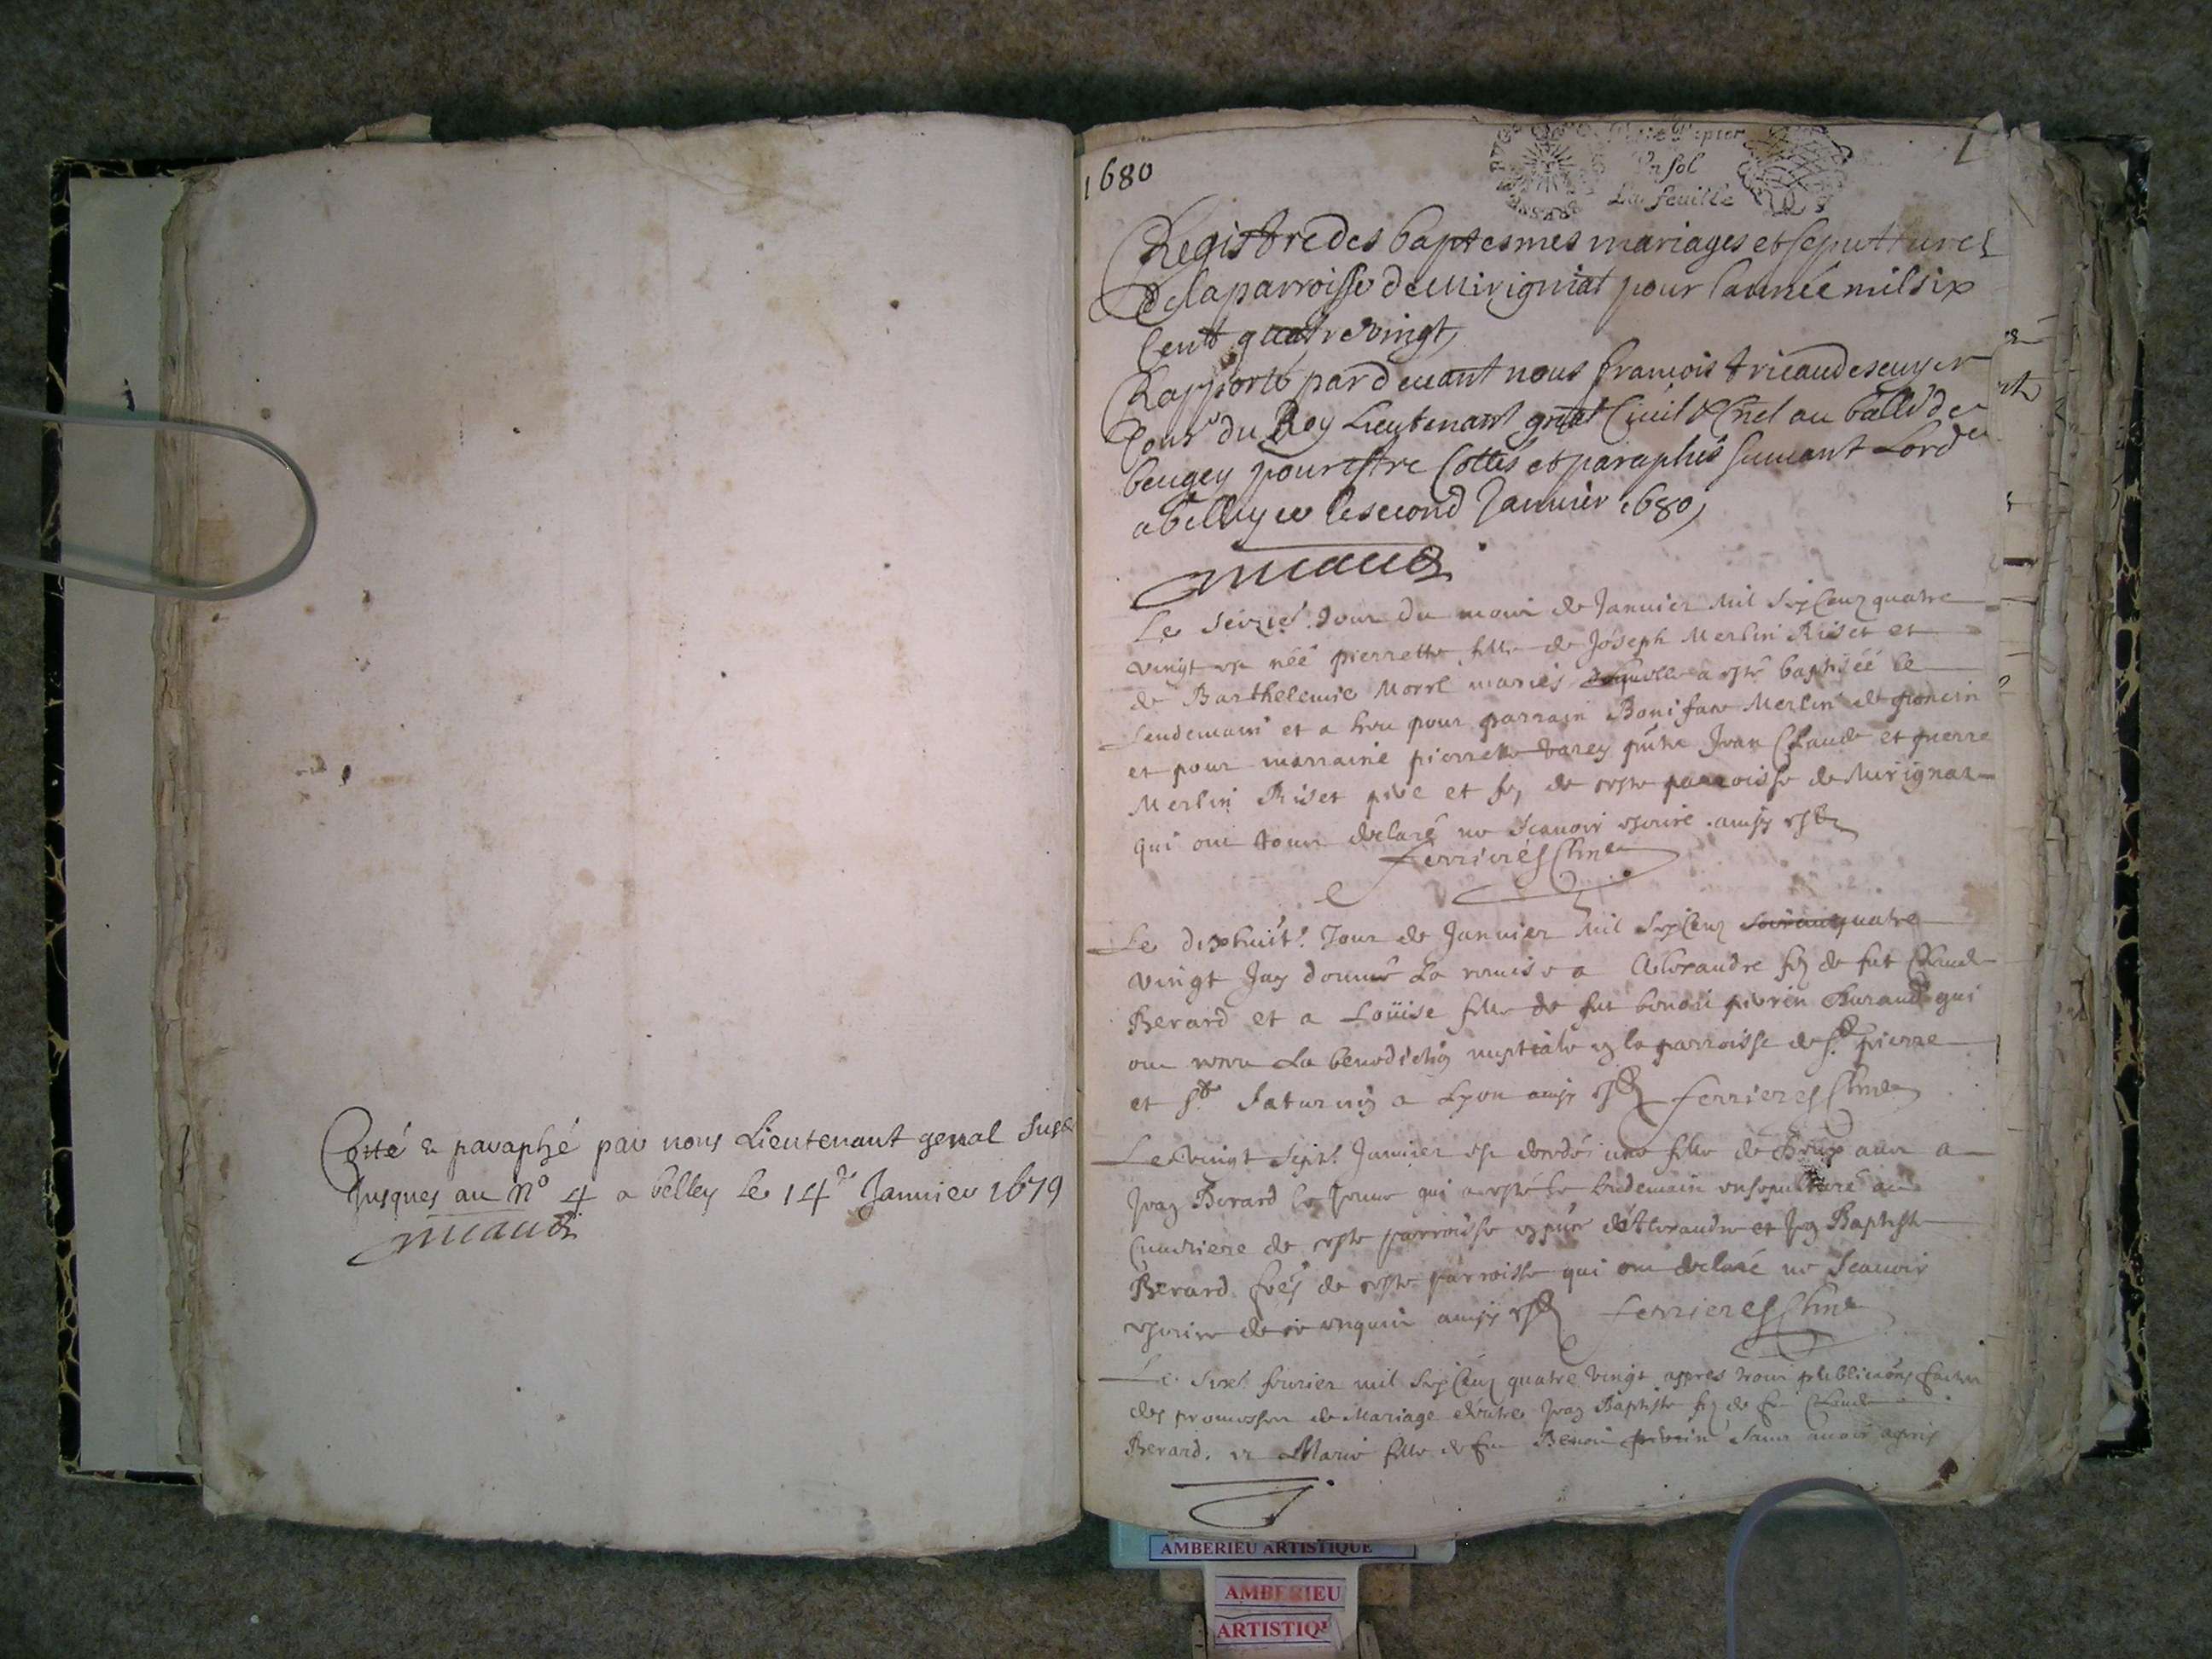 Cotté & paraphé par nous Lieutenant genral
Jusques au n° 4 a belley le 14e Janvier 1679
1680
Papier
Un sol
La feuille
Registre des baptesmes mariages et sepultures
de la parroisse de Mirigniat pour lannée mil six
Cent quatre vingt,
Rapporté pardevant nous françois tricaud escuyer
du Roy Lieutenant Civil & au de
beugey pour estre Cottés et paraphés suivant Lord
a belley ce le second Janvier 1680,
Le jour du mois de Janvier Mil six Cenz quatre
vingt est néé pierrette fille de Joseph Merlin Riset et
de Barthelemie Morel mariés a esté baptiséé le
Lendemain et a heu pour parrain Boniface Merlin de poncin
et pour marraine pierrette varey Jean Claude et pierre
Merlin Riset de ceste parroisse de Mirignat
qui ont tous declaré ne scavoir escrire. ainsy est
ferrieres
Le dixhuit. Jour de Janvier Mil six Cenz quatre
vingt Jay donné La remise a fis de fut Claude
Berard et a Loüise fille de fut benoit qui
ont receu La benediction nuptiale en la parroisse de St. pierre
et St. Saturnin a Lyon ainsy est ferrieres
Le vingt sept. Janvier est une fille de a
Jean Berard le Jeune qui a esté le Lendemain au
Cimetiere de ceste parroisse en pnce et Jean Baptiste
Berard de ceste parroisse qui ont declaré ne scavoir
escrire de ce enquis ainsy est ferrieres
Le feurier mil six Cenz quatre vingt appres trois publications faictes
des promesses de Mariage d'entre Jean Baptiste fis de feu Claude
Berard. et Marie fille de feu Benoit sans avoir appris
AMBERIEU ARTISTIQUE
AMBERIEU
ARTISTIQU